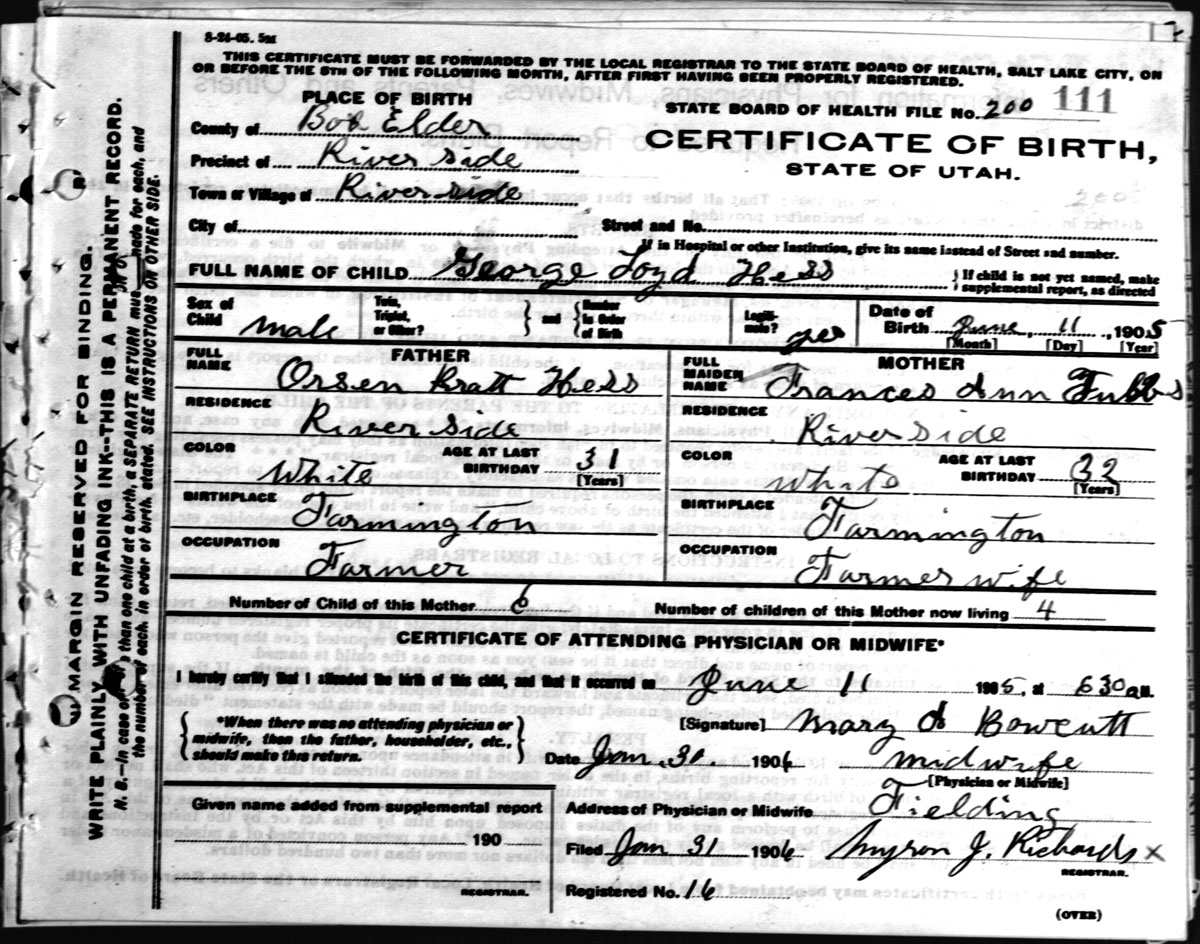 8-24-05. 5M
THIS CERTIFICATE MUST BE FORWARDED BY THE LOCAL REGISTRAR TO THE STATE BOARD OF HEALTH, SALT LAKE CITY, ON
OR BEFORE THE 5TH OF THE FOLLOWING MONTH, AFTER FIRST HAVING BEEN PROPERLY REGISTERED.
PLACE OF BIRTH
STATE BOARD OF HEALTH FILE No. 200 111
County of Box Elder
CERTIFICATE OF BIRTH,
Precinct of River side
STATE OF UTAH.
Town or Village of River side
City of Street and No.
If in Hospital or other Institution, give its name instead of Street and number.
FULL NAME OF CHILD George Loyd Hess } If child is not yet named, make supplemental report, as directed
Sex of Child male Twin, Triplet, or Other? } and { Number in Order of Birth Legitimate? yes Date of Birth June, 11, 1905
[Month] [Day] [Year]
FATHER
FULL NAME Orsen Pratt Hess
RESIDENCE River side
COLOR White AGE AT LAST BIRTHDAY 31 [Years]
BIRTHPLACE Farmington
OCCUPATION Farmer
MOTHER
FULL MAIDEN NAME Frances Ann Tubbs
RESIDENCE River side
COLOR White AGE AT LAST BIRTHDAY 32 [Years]
BIRTHPLACE Farmington
OCCUPATION Farmer wife
Number of Child of this Mother 6 Number of children of this Mother now living 4
CERTIFICATE OF ATTENDING PHYSICIAN OR MIDWIFE*
I hereby certify that I attended the birth of this child, and that it occurred on June 11 1905, at 630 a M.
{ *When there was no attending physician or midwife, then the father, householder, etc., should make this return. }
[Signature] Mary A Bowcutt
Date Jan. 31 1906 midwife
[Physician or Midwife]
Given name added from supplemental report
190
REGISTRAR.
Address of Physician or Midwife Fielding
Filed Jan 31 1906 Myron J. Richards x
REGISTRAR.
Registered No. 16
(OVER)
MARGIN RESERVED FOR BINDING.
WRITE PLAINLY WITH UNFADING INK--THIS IS A PERMANENT RECORD.
N. B.—In case of than one child at a birth, a SEPARATE RETURN must made for each, and
the number of each, in order of birth, stated. SEE INSTRUCTIONS ON OTHER SIDE.